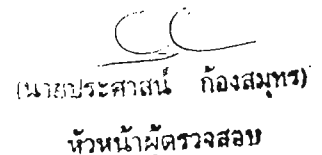 (นายประศาสน์ ก้องสมุทร)
หัวหน้าผู้ตรวจสอบ